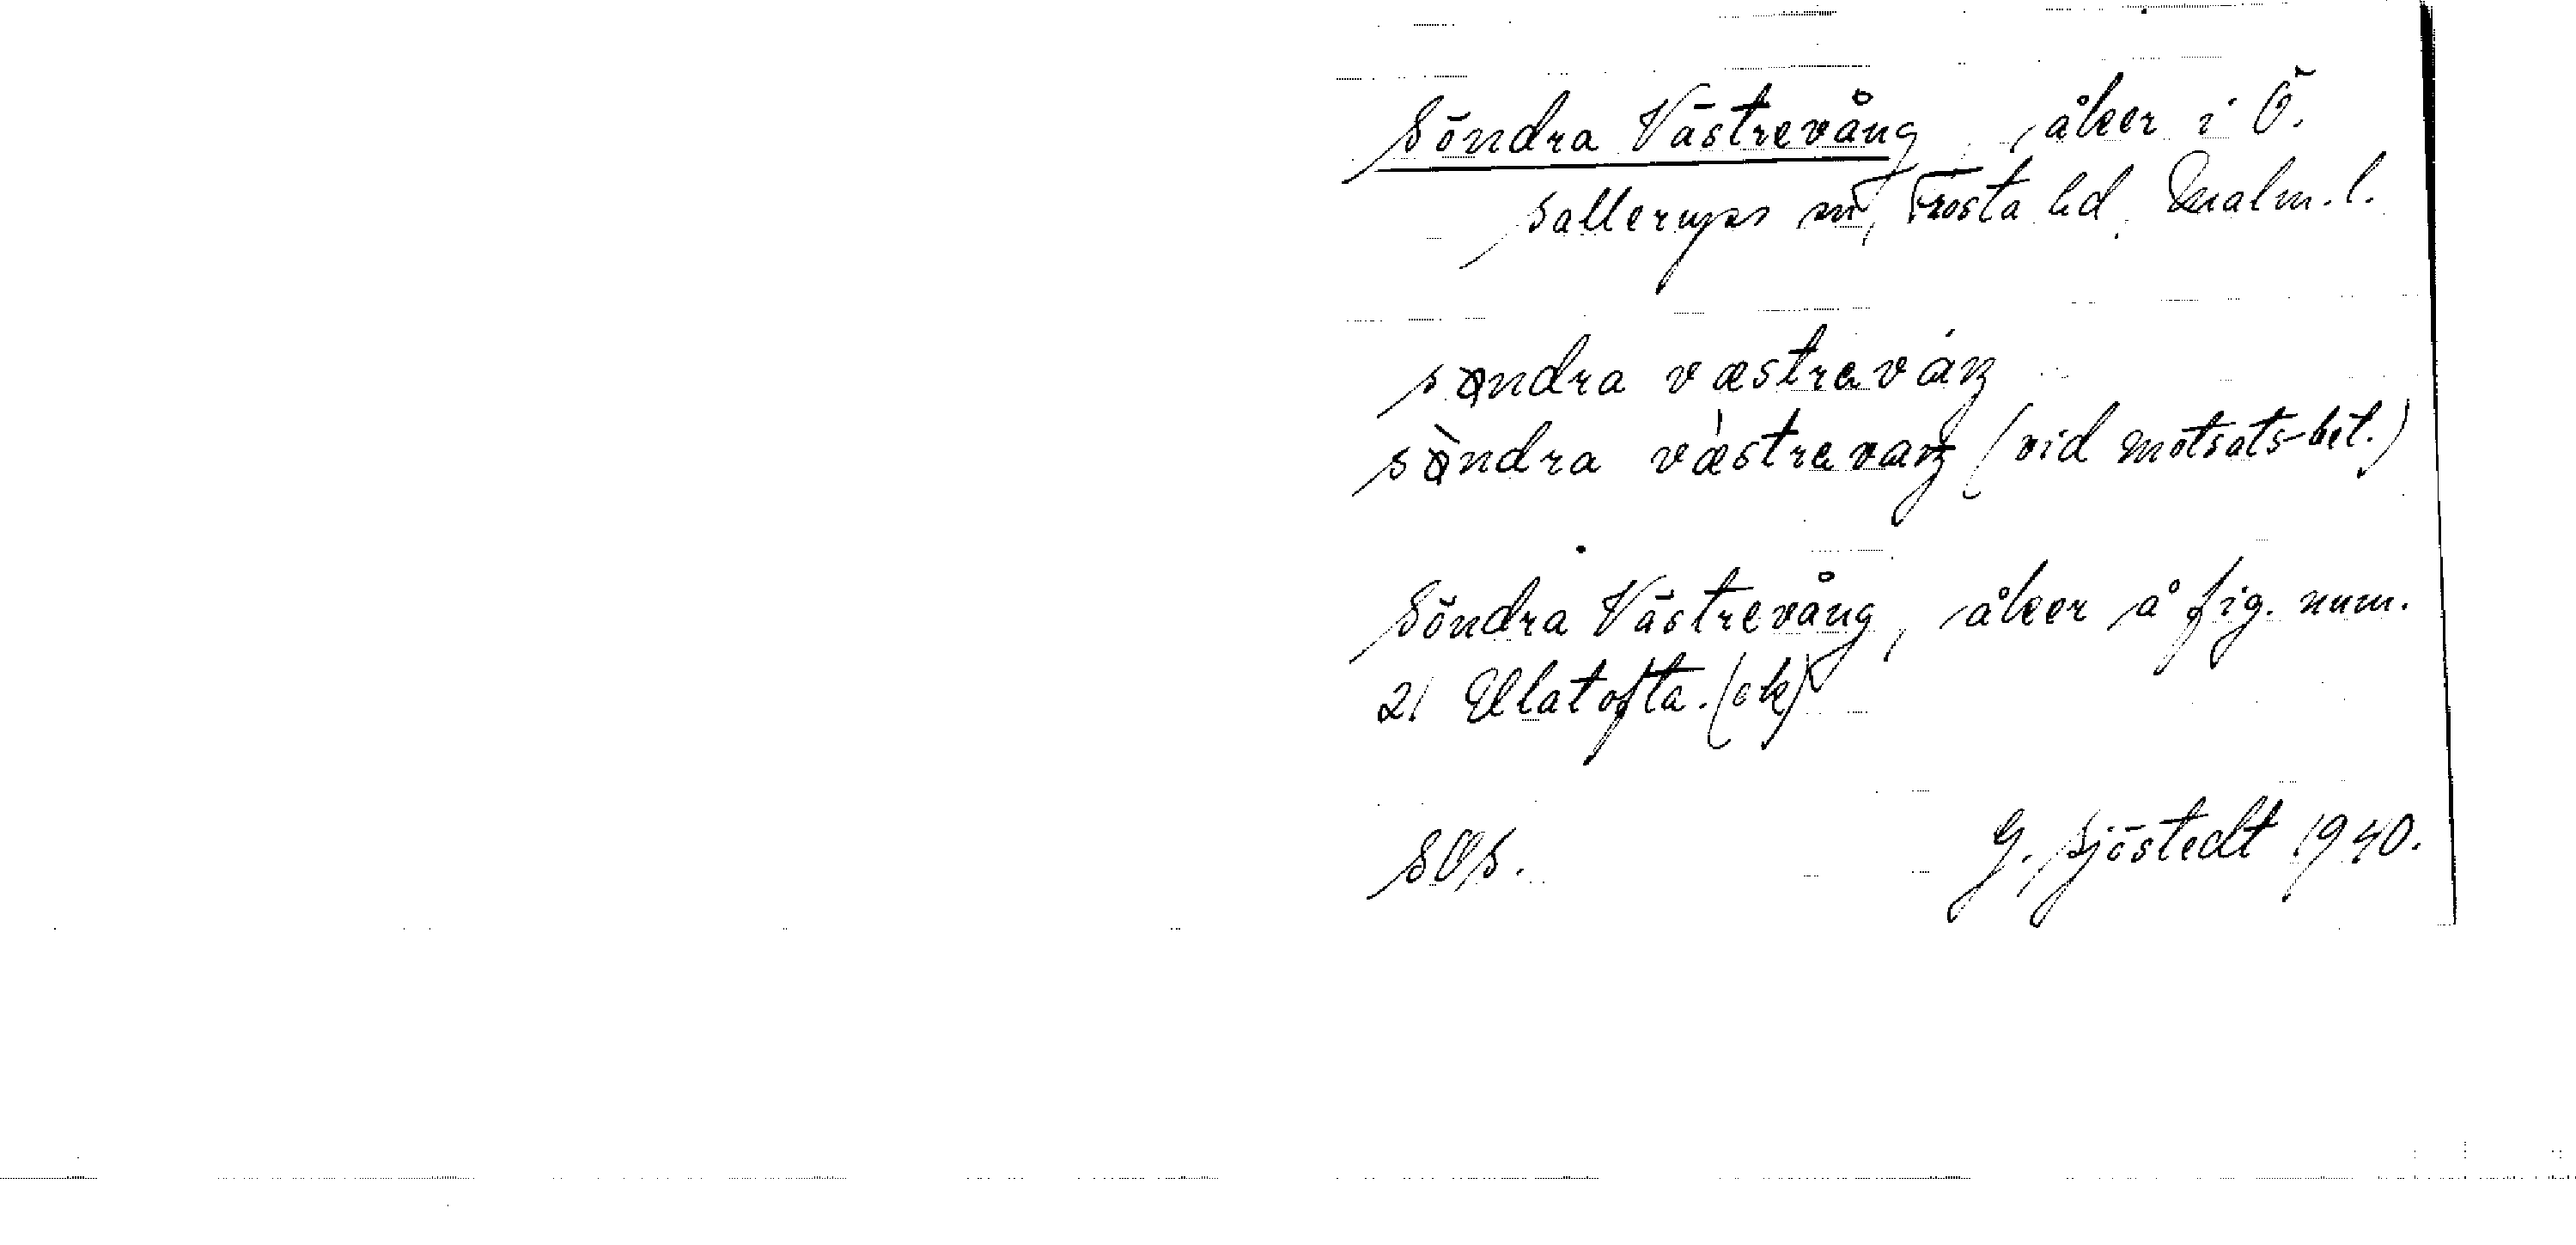 Söndra Västrevång, åker i Ö.
Sallerups sn, Frosta hd. Malm. l.
søndra væstravaŋ
sǿndra væ̀stravaŋ (vid motsats-bet.)
Söndra Västrevång, åker å fig. num.
21 Ellatofta. (ek)
SOs.
G. Sjöstedt 1940.